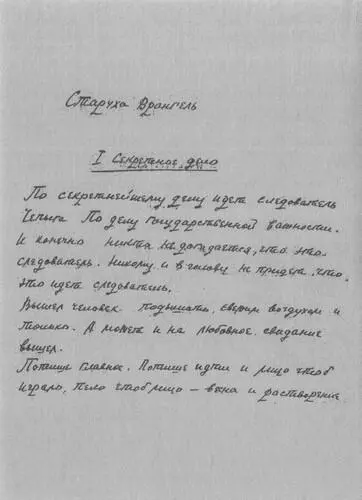 Старуха Врангель
I Секретное дело
По секретнейшему делу идет следователь
Чепыга По делу государственной важности.
И конечно никто не догадается, что это
следователь. Никому и в голову не придет, что
это идет следователь.
Вышел человек подышать, свежим воздухом и
только. А может и на любовное свидание
вышел.
Потише главное. Потише идти и лицо чтоб
играло, пело чтоб лицо – весна и растворение